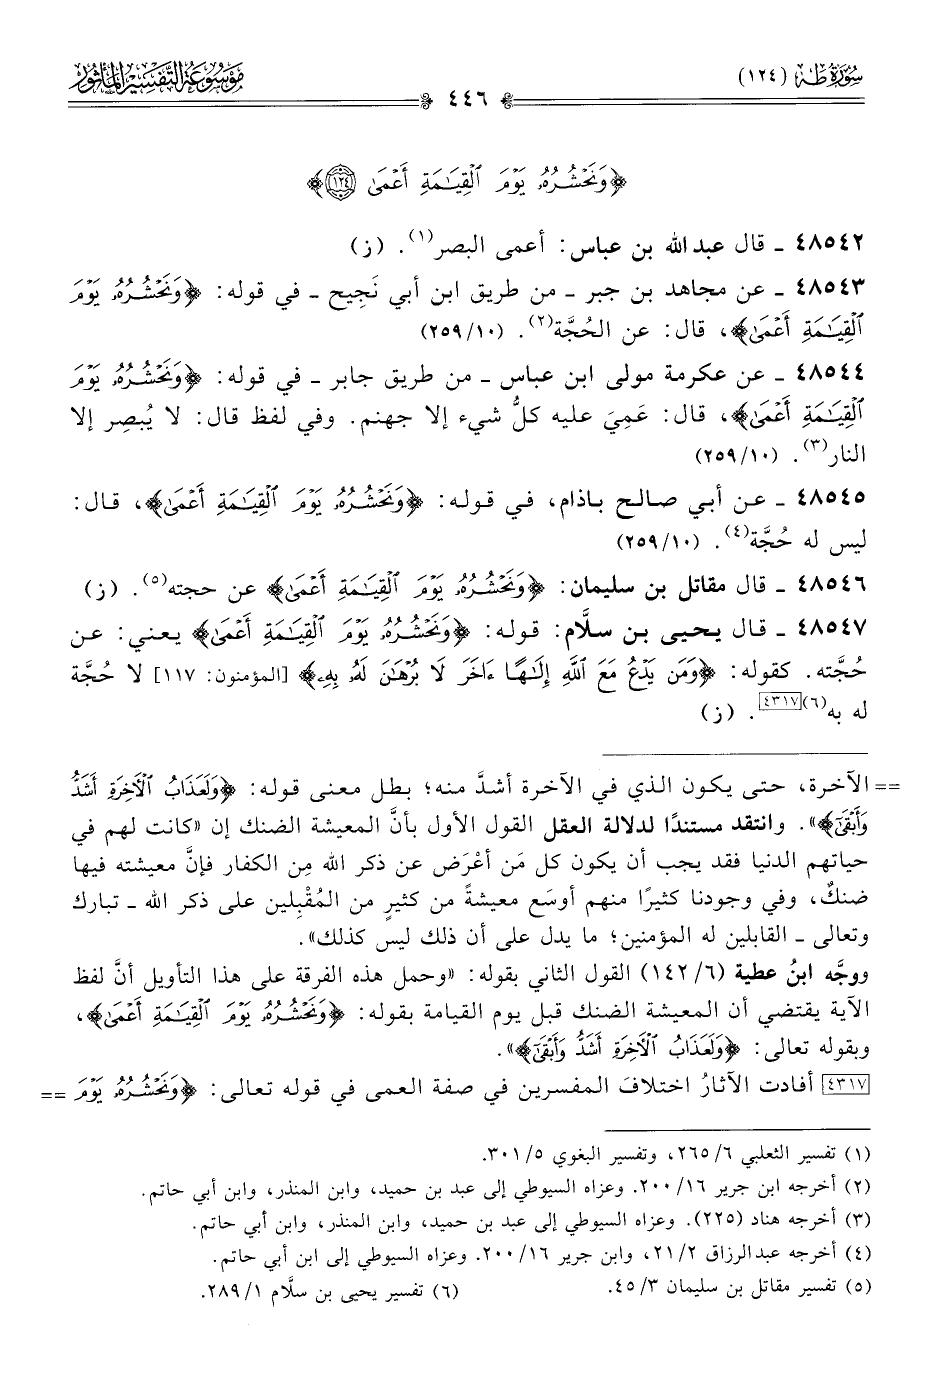 سُورَةُ طه (١٢٤)
مَوْسُوعَةُ التَّفْسِيرِ المَأْثُورِ
٤٤٦
﴿وَنَحْشُرُهُۥ يَوْمَ ٱلْقِيَـٰمَةِ أَعْمَىٰ ١٢٤﴾
٤٨٥٤٢ ـ قال عبد الله بن عباس: أعمى البصر(١). (ز)
٤٨٥٤٣ ـ عن مجاهد بن جبر ـ من طريق ابن أبي نَجِيح ـ في قوله: ﴿وَنَحْشُرُهُۥ يَوْمَ
ٱلْقِيَـٰمَةِ أَعْمَىٰ﴾، قال: عن الحُجَّة(٢). (١٠/٢٥٩)
٤٨٥٤٤ ـ عن عكرمة مولى ابن عباس ـ من طريق جابر ـ في قوله: ﴿وَنَحْشُرُهُۥ يَوْمَ
ٱلْقِيَـٰمَةِ أَعْمَىٰ﴾، قال: عَمِيَ عليه كلُّ شيء إلا جهنم. وفي لفظ قال: لا يُبصِر إلا
النار(٣). (١٠/٢٥٩)
٤٨٥٤٥ ـ عن أبي صالح باذام، في قوله: ﴿وَنَحْشُرُهُۥ يَوْمَ ٱلْقِيَـٰمَةِ أَعْمَىٰ﴾، قال:
ليس له حُجَّة(٤). (١٠/٢٥٩)
٤٨٥٤٦ ـ قال مقاتل بن سليمان: ﴿وَنَحْشُرُهُۥ يَوْمَ ٱلْقِيَـٰمَةِ أَعْمَىٰ﴾ عن حجته(٥). (ز)
٤٨٥٤٧ ـ قال يحيى بن سلَّام: قوله: ﴿وَنَحْشُرُهُۥ يَوْمَ ٱلْقِيَـٰمَةِ أَعْمَىٰ﴾ يعني: عن
حُجَّته. كقوله: ﴿وَمَن يَدْعُ مَعَ ٱللَّهِ إِلَـٰهًا ءَاخَرَ لَا بُرْهَـٰنَ لَهُۥ بِهِۦ﴾ [المؤمنون: ١١٧] لا حُجَّة
له به(٦)[٤٣١٧]. (ز)
== الآخرة، حتى يكون الذي في الآخرة أشدَّ منه؛ بطل معنى قوله: ﴿وَلَعَذَابُ ٱلْأَخِرَةِ أَشَدُّ
وَأَبْقَىٰٓ﴾». وانتقد مستندًا لدلالة العقل القول الأول بأنَّ المعيشة الضنك إن «كانت لهم في
حياتهم الدنيا فقد يجب أن يكون كل مَن أعْرَض عن ذكر الله مِن الكفار فإنَّ معيشته فيها
ضنكٌ، وفي وجودنا كثيرًا منهم أوسَع معيشةً من كثيرٍ من المُقْبِلين على ذكر الله ـ تبارك
وتعالى ـ القابلين له المؤمنين؛ ما يدل على أن ذلك ليس كذلك».
ووجَّه ابنُ عطية (٦/١٤٢) القول الثاني بقوله: «وحمل هذه الفرقة على هذا التأويل أنَّ لفظ
الآية يقتضي أن المعيشة الضنك قبل يوم القيامة بقوله: ﴿وَنَحْشُرُهُۥ يَوْمَ ٱلْقِيَـٰمَةِ أَعْمَىٰ﴾،
وبقوله تعالى: ﴿وَلَعَذَابُ ٱلْأَخِرَةِ أَشَدُّ وَأَبْقَىٰٓ﴾».
[٤٣١٧] أفادت الآثارُ اختلافَ المفسرين في صفة العمى في قوله تعالى: ﴿وَنَحْشُرُهُۥ يَوْمَ ==
(١) تفسير الثعلبي ٦/٢٦٥، وتفسير البغوي ٥/٣٠١.
(٢) أخرجه ابن جرير ١٦/٢٠٠. وعزاه السيوطي إلى عبد بن حميد، وابن المنذر، وابن أبي حاتم.
(٣) أخرجه هناد (٢٢٥). وعزاه السيوطي إلى عبد بن حميد، وابن المنذر، وابن أبي حاتم.
(٤) أخرجه عبد الرزاق ٢/٢١، وابن جرير ١٦/٢٠٠. وعزاه السيوطي إلى ابن أبي حاتم.
(٥) تفسير مقاتل بن سليمان ٣/٤٥. (٦) تفسير يحيى بن سلَّام ١/٢٨٩.